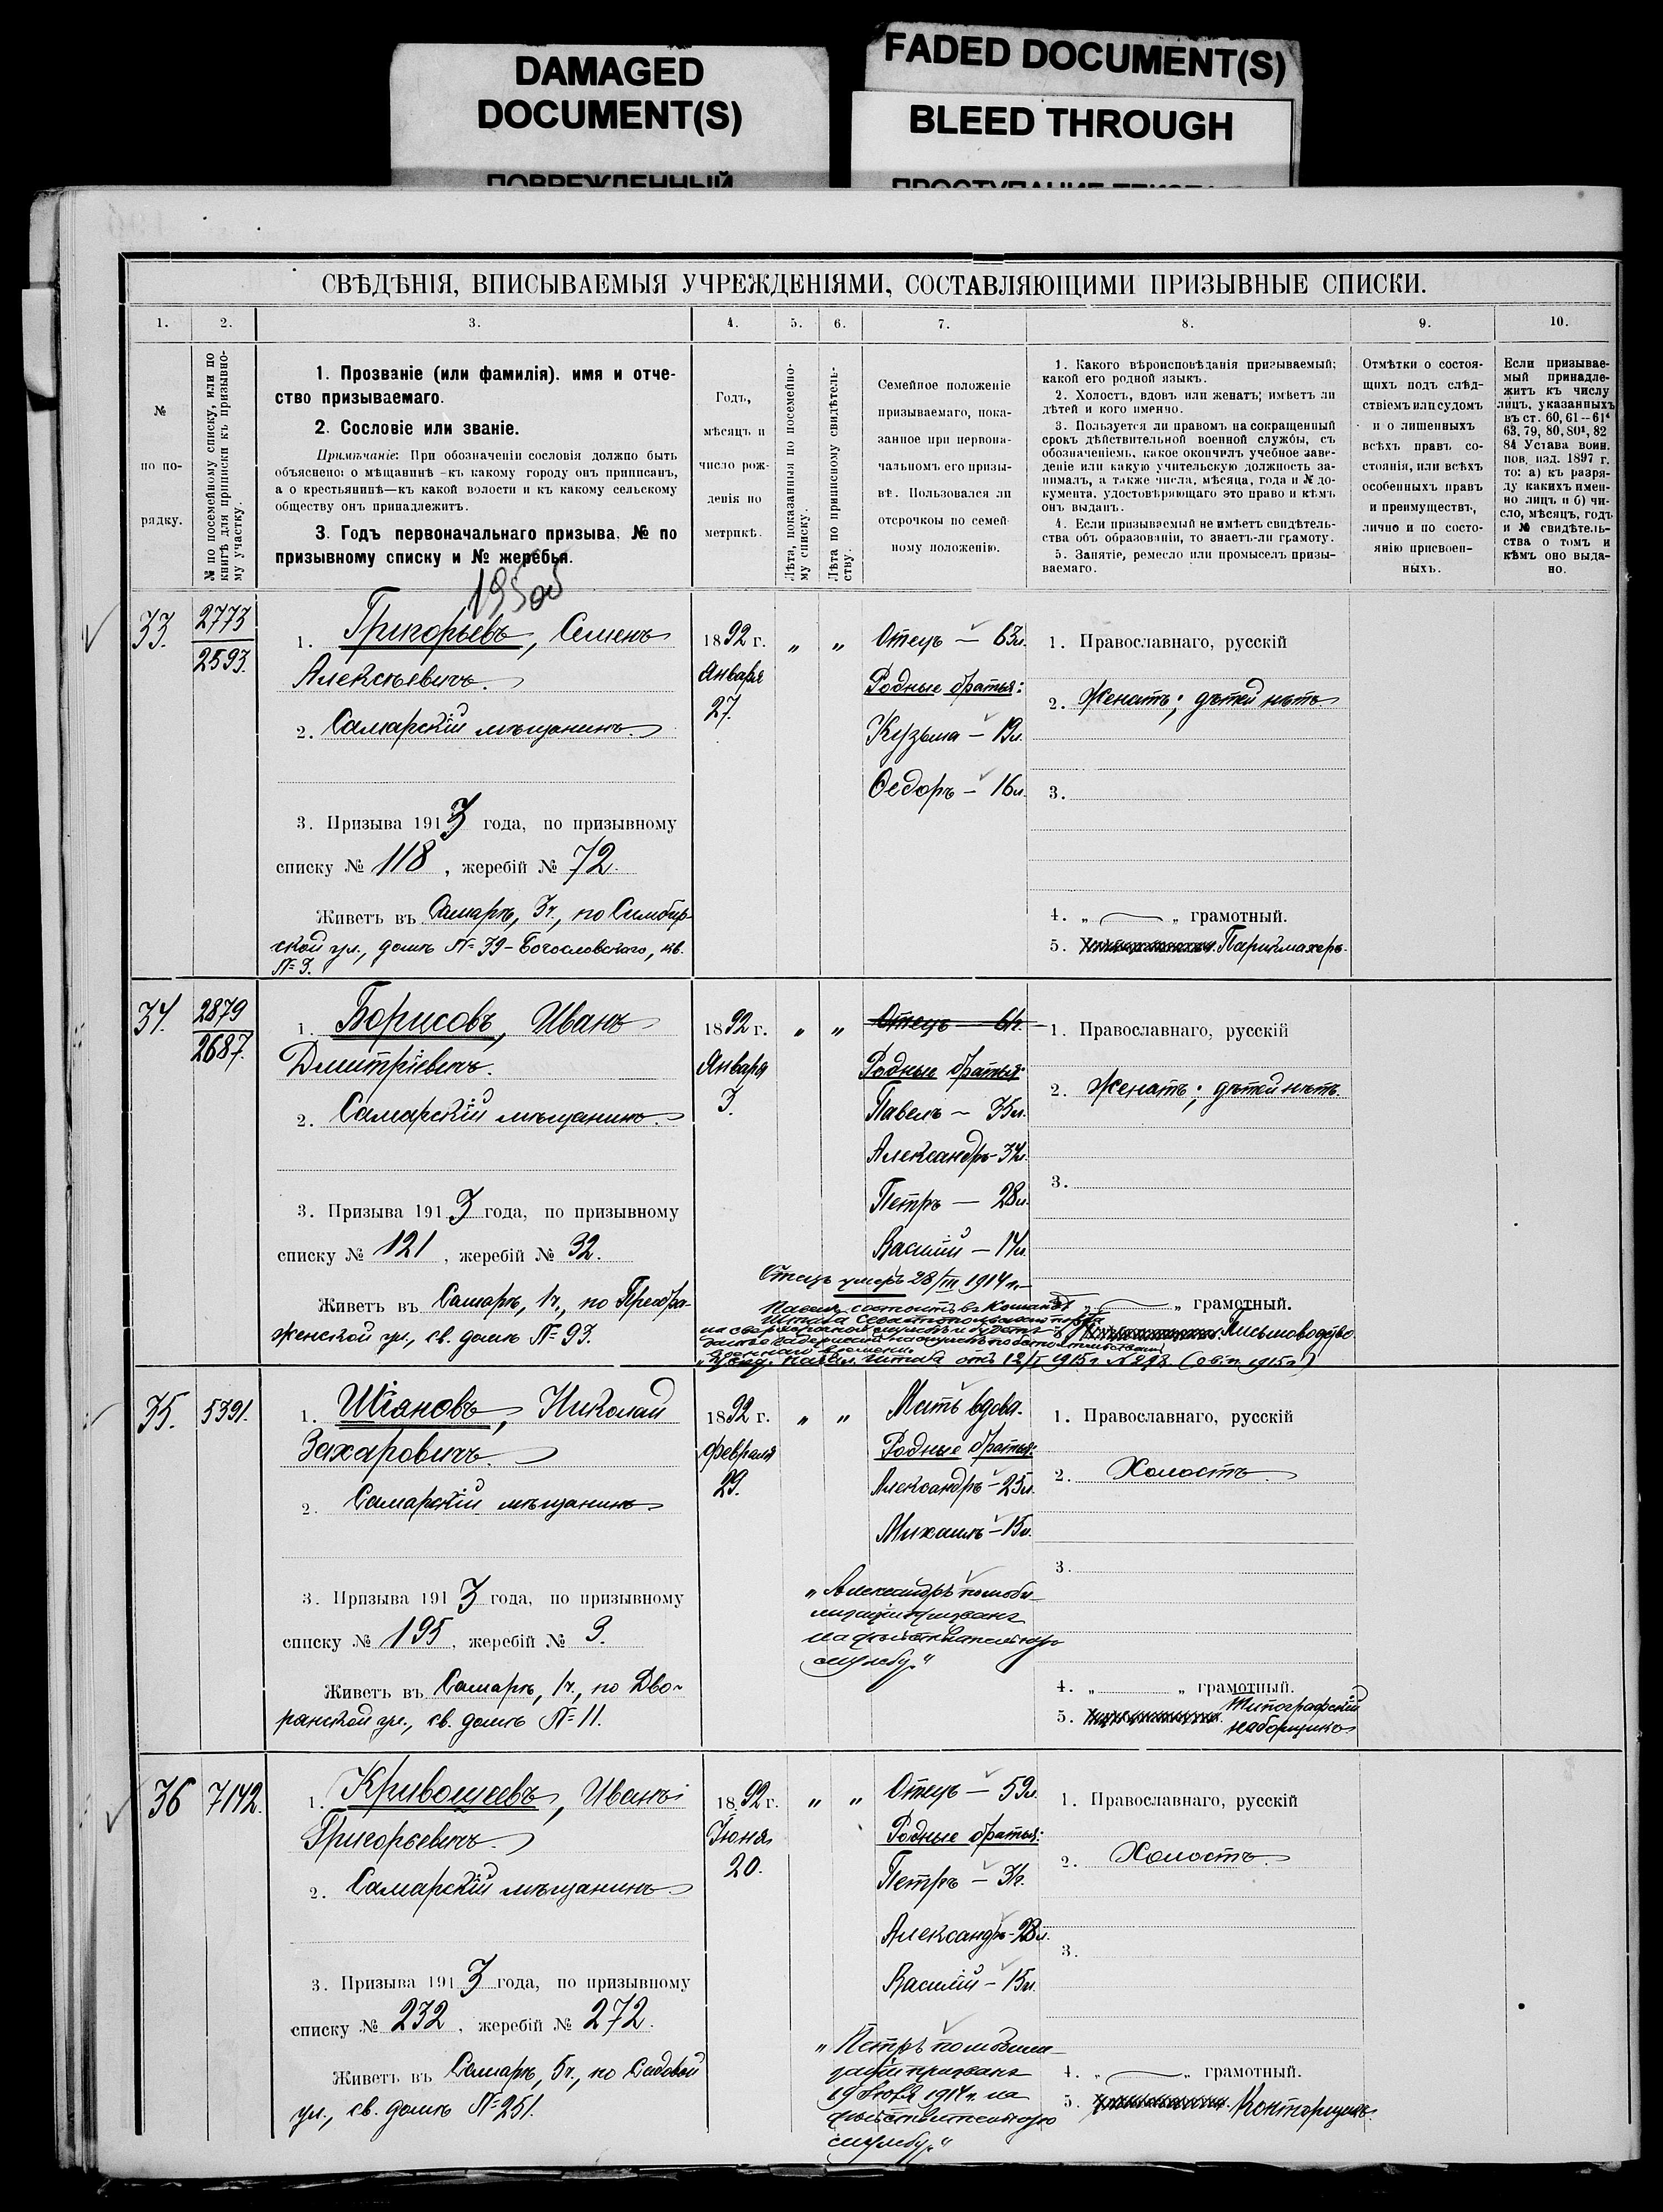 DAMAGED
DOCUMENT(S)
ПОВРЕЖДЕННЫЙ
FADED DOCUMENT(S)
BLEED THROUGH
СВѢДѢНІЯ, ВПИСЫВАЕМЫЯ УЧРЕЖДЕНІЯМИ, СОСТАВЛЯЮЩИМИ ПРИЗЫВНЫЕ СПИСКИ.
1.
2.
3.
4.
5.
6.
7.
8.
9.
10.
№
по по-
рядку.
№ по посемейному списку, или по
книгѣ для приписки къ призывно-
му участку.
1. Прозваніе (или фамилія). имя и отче-
ство призываемаго.
2. Сословіе или званіе.
Примѣчаніе: При обозначеніи сословія должно быть
объяснено: о мѣщанинѣ -къ какому городу онъ приписанъ,
а о крестьянинѣ—къ какой волости и къ какому сельскому
обществу онъ принадлежитъ.
3. Годъ первоначальнаго призыва. № по
призывному списку и № жеребья.
Годъ,
мѣсяцъ и
число рож-
денія по
метрикѣ.
Лѣта, показанныя по посемейно-
му списку.
Лѣта по приписному свидѣтель-
ству.
Семейное положеніе
призываемаго, пока-
занное при первона-
чальномъ его призы-
вѣ. Пользовался ли
отсрочкой по семей-
ному положенію.
1. Какого вѣроисповѣданія призываемый;
какой его родной языкъ.
2. Холостъ, вдовъ или женатъ; имѣетъ ли
дѣтей и кого именно.
3. Пользуется ли правомъ на сокращенный
срокъ дѣйствительной военной службы, съ
обозначеніемъ, какое окончилъ учебное заве-
деніе или какую учительскую должность за-
нималъ, а также числа, мѣсяца, года и № до-
кумента, удостовѣряющаго это право и кѣмъ
онъ выданъ.
4. Если призываемый не имѣетъ свидѣтель-
ства объ образованіи, то знаетъ-ли грамоту.
5. Занятіе, ремесло или промыселъ призы-
ваемаго.
Отмѣтки о состоя-
щихъ подъ слѣд-
ствіемъ или судомъ
и о лишенныхъ
всѣхъ правъ со-
стоянія, или всѣхъ
особенныхъ правъ
и преимуществъ,
лично и по состо-
янію присвоен-
ныхъ.
Если призывае-
мый принадле-
житъ къ числу
лицъ, указанныхъ
въ ст. 60, 61—61⁴
63, 79, 80, 80¹, 82
84 Устава воин.
пов. изд. 1897 г.
то: а) къ разря-
ду какихъ имен-
но лицъ и б) чи-
сло, мѣсяцъ, годъ
и № свидѣтель-
ства о томъ и
кѣмъ оно выда-
но.
33.
2773
2593.
1. Григорьевъ, Семенъ
Алексѣевичъ.
2. Самарскій мѣщанинъ.
3. Призыва 1913 года, по призывному
списку № 118, жеребій № 72.
Живетъ въ Самарѣ, 3ч., по Симбир-
ской ул., домъ № 39-Богословскаго, кв.
№ 3.
1892 г.
Января
27.
" "
Отецъ — 63л.
Родные братья:
Кузьма — 19л.
Ѳедоръ — 16л.
1. Православнаго, русскій
2. Женатъ; дѣтей нѣтъ
3.
4. „ „ грамотный.
5. Парикмахеръ.
34.
2879
2687.
1. Борисовъ, Иванъ
Дмитріевичъ.
2. Самарскій мѣщанинъ.
3. Призыва 1913 года, по призывному
списку № 121, жеребій № 32.
Живетъ въ Самарѣ, 1ч., по Преобра-
женской ул., св. домъ № 93.
1892 г.
Января
3.
" "
Отецъ — 61г.
Родные братья:
Павелъ — 35л.
Александръ - 34л.
Петръ — 28л.
Василій — 14л.
Отецъ умеръ 28/III 1914 г.
Павелъ состоитъ въ Командѣ
Штаба Севастопольскаго порта
на сверхсрочной службѣ и будетъ
военнаго времени.
Штаба отъ 12/I 1915г. № 293.
1. Православнаго, русскій
2. Женатъ; дѣтей нѣтъ.
3.
„ „ грамотный.
Письмоводство
35.
5391.
1. Шіановъ, Николай
Захаровичъ.
2. Самарскій мѣщанинъ
3. Призыва 1913 года, по призывному
списку № 195, жеребій № 3.
Живетъ въ Самарѣ, 1ч., по Дво-
рянской ул., св. домъ № 11.
1892 г.
Февраля
29.
" "
Мать вдова.
Родные братья:
Александръ — 25л.
Михаилъ — 15л.
„Александръ по моби-
лизаціи призванъ
на дѣйствительную
службу."
1. Православнаго, русскій
2. Холостъ.
3.
4. „ „ грамотный.
5. Типографскій
наборщикъ
36
7142.
1. Кривошеевъ, Иванъ
Григорьевичъ.
2. Самарскій мѣщанинъ.
3. Призыва 1913 года, по призывному
списку № 232, жеребій № 272.
Живетъ въ Самарѣ, 5ч., по Садовой
ул., св. домъ № 251.
1892 г.
Іюня
20.
" "
Отецъ — 59л.
Родные братья:
Петръ — 31г.
Александръ - 28л.
Василій — 15л.
„Петръ по мобили-
заціи призванъ
19 Іюля 1914 г. на
дѣйствительную
службу."
1. Православнаго, русскій
2. Холостъ.
3.
4. „ „ грамотный.
5. Конторщикъ.